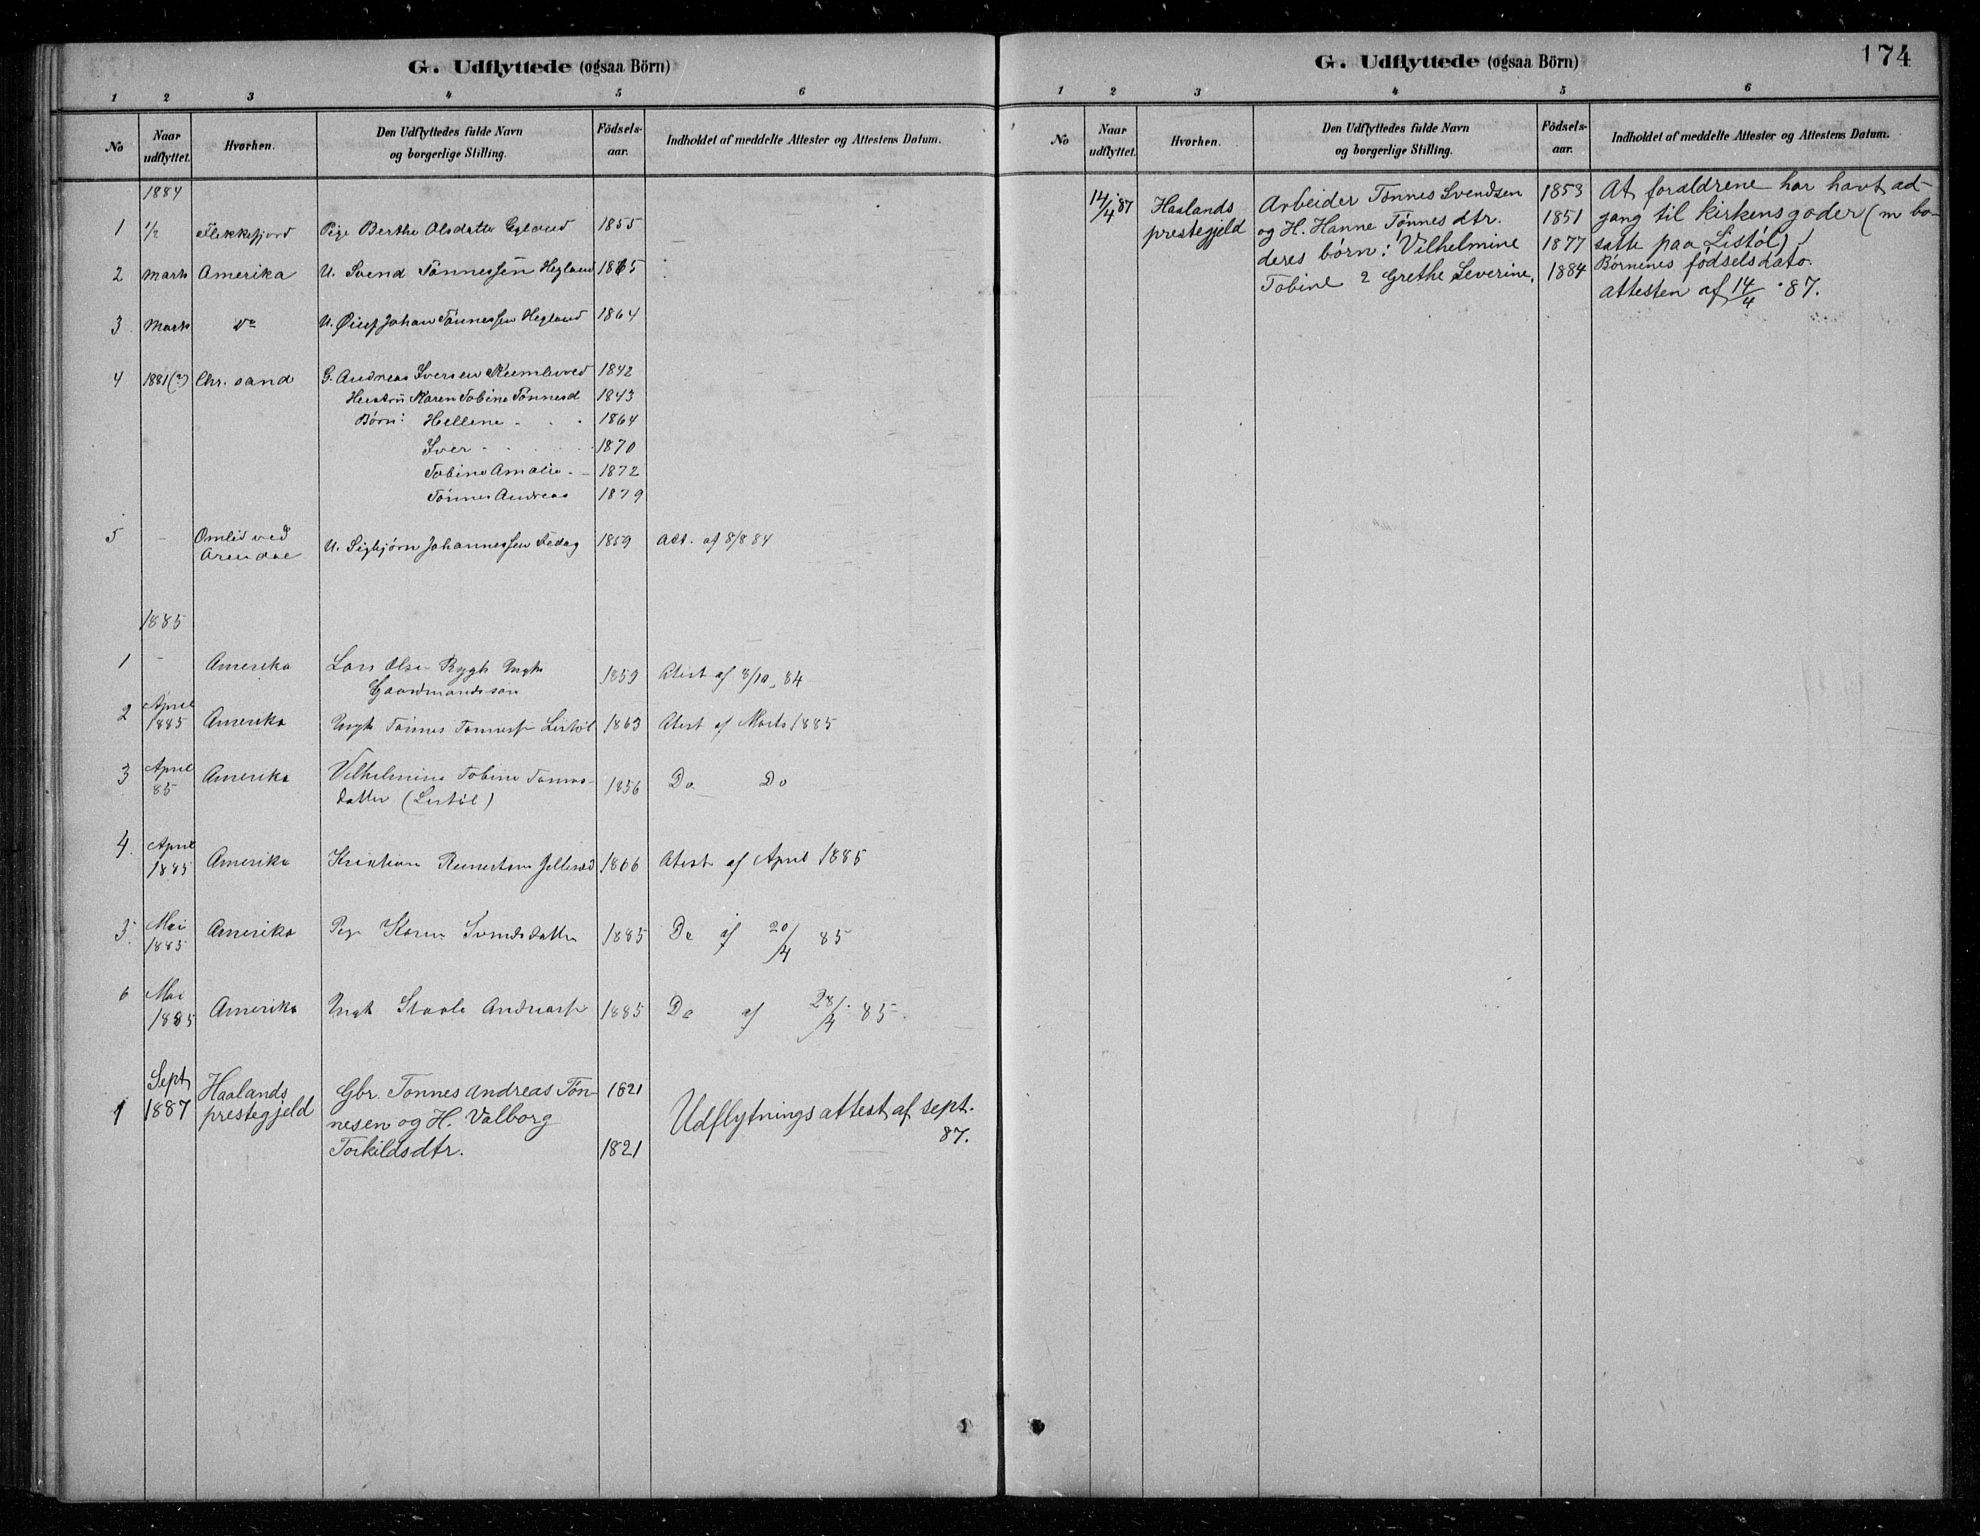 G. Udflyttede (ogsaa Börn)
1 2 3 4 5 6
No Naar udflyttet. Hvorhen. Den Udflyttedes fulde Navn og borgerlige Stilling. Födsels-aar. Indholdet af meddelte Attester og Attestens Datum.
1884
1 1/2 Flekkefjord Pige Berthe Olsdatter Egeland 1855
2 Marts Amerika U. Svend Tönnessen Hegland 1865
3 Marts Do U. Johan Tönnessen Hegland 1864
4 1881(?) Chr. sand G. Andreas Iversen 1842
Hustru Karen Tobine Tönnesd 1843
Börn: Hellene 1864
Iver 1870
Tobine Amalie 1872
Tönnes Andreas 1879
5 - Omlid ved
Arendal U. Sigbjørn Johannessen Fedog 1859 Att. af 8/8 84
1885
1 - Amerika Lars Olsen Rygh Ungk 1859 Atest af 8/10 84
Gaardmandssøn
2 April
1885 Amerika Ungk Tönnes Tönness Listöl 1863 Atest af Marts 1885
3 April
85 Amerika Vilhelmine Tobine Tönnes-
datter (Listöl) 1856 Do Do
4. April
1885 Amerika Kristian Reinertsen 1866 Atest af April 1885
5. Mai
1885 Amerika Pige Karen Svendsdatter 1885 Do af 20/4 85
6 Mai
1885 Amerika Ungk Staale Andreass 1885 Do af 28/4 85.
1 Sept
1887 Haalands
prestegjeld Gbr. Tønnes Andreas Tøn- 1821
nesen og H. Valborg
Torkildsdtr. 1821
Udflytningsattest af sept.
87.
G. Udflyttede (ogsaa Börn) 174
1 2 3 4 5 6
No Naar udflyttet. Hvorhen. Den Udflyttedes fulde Navn og borgerlige Stilling. Födsels-aar. Indholdet af meddelte Attester og Attestens Datum.
14/4 87 Haalands
prestegjeld
Arbeider Tönnes Svendsen 1853
og H. Hanne Tönnes dtr. 1851
deres börn: Vilhelmine 1877
Tobine 2 Grethe Severine. 1884
At foraldrene har havt ad-
gang til kirkens goder (m bo-
satte paa Listöl)
Børnenes fødselsdato.
attesten af 14/4 87.